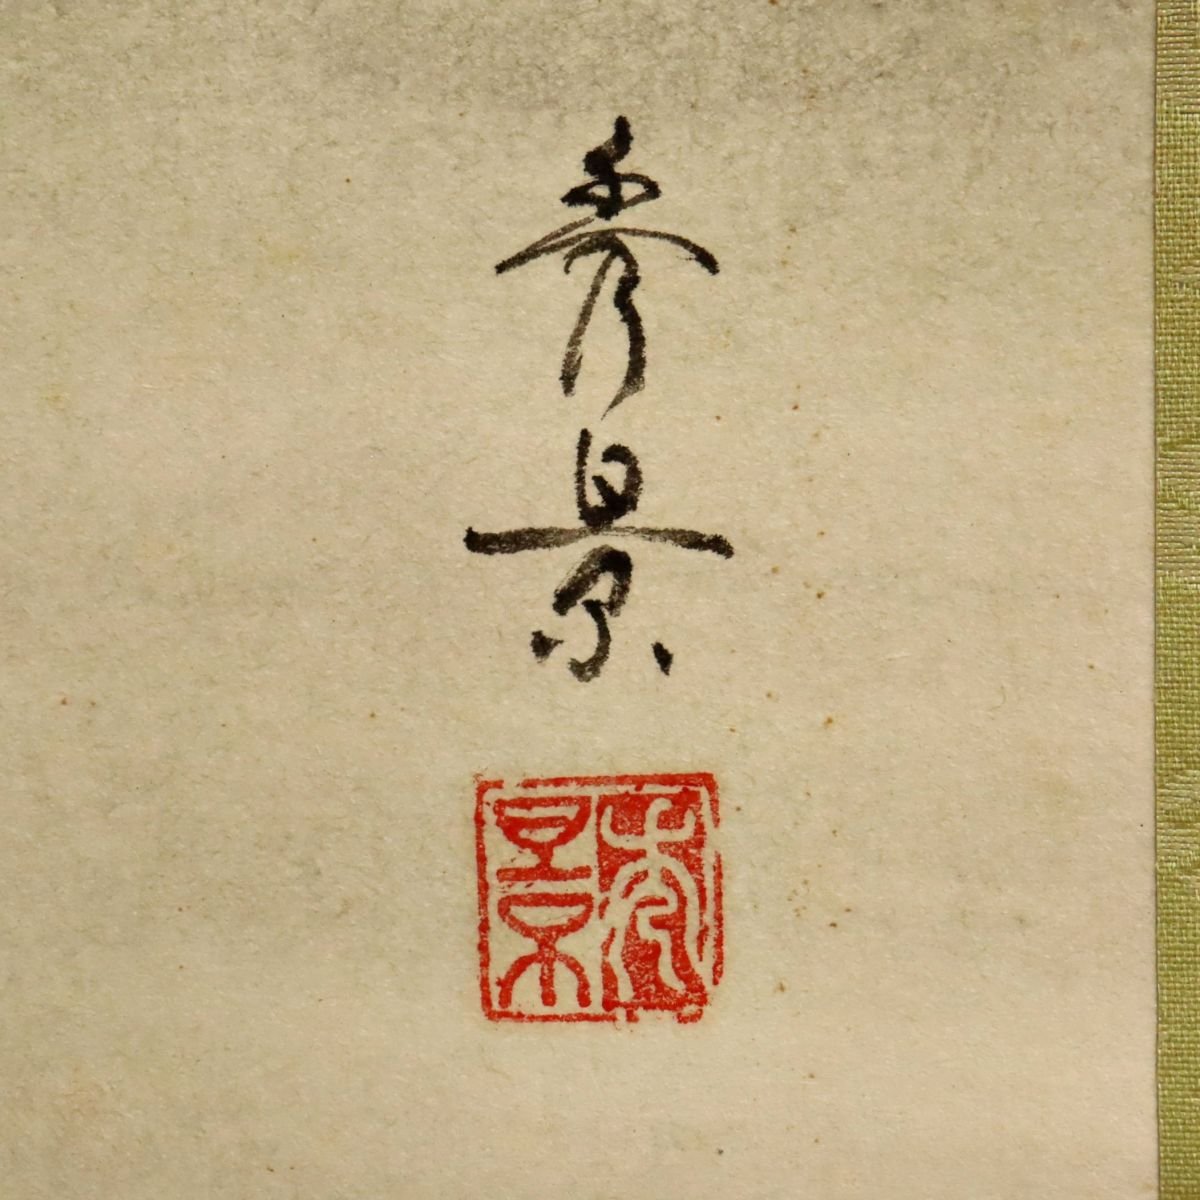 秀景
秀景